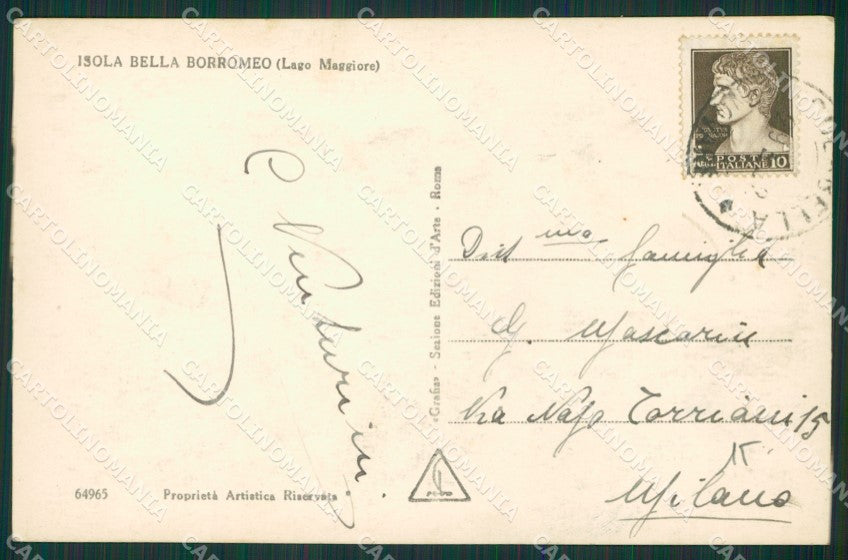 ISOLA BELLA BORROMEO (Lago Maggiore)
POSTE
ITALIANE 10
BELLA
C Venturini
«Grafia» - Sezione Edizioni d'Arte - Roma
Dist ma Famiglia
G. Mascarin
Via Napo Torriani 15
15
Milano
64965 Proprietà Artistica Riservata
CARTOLINOMANIA